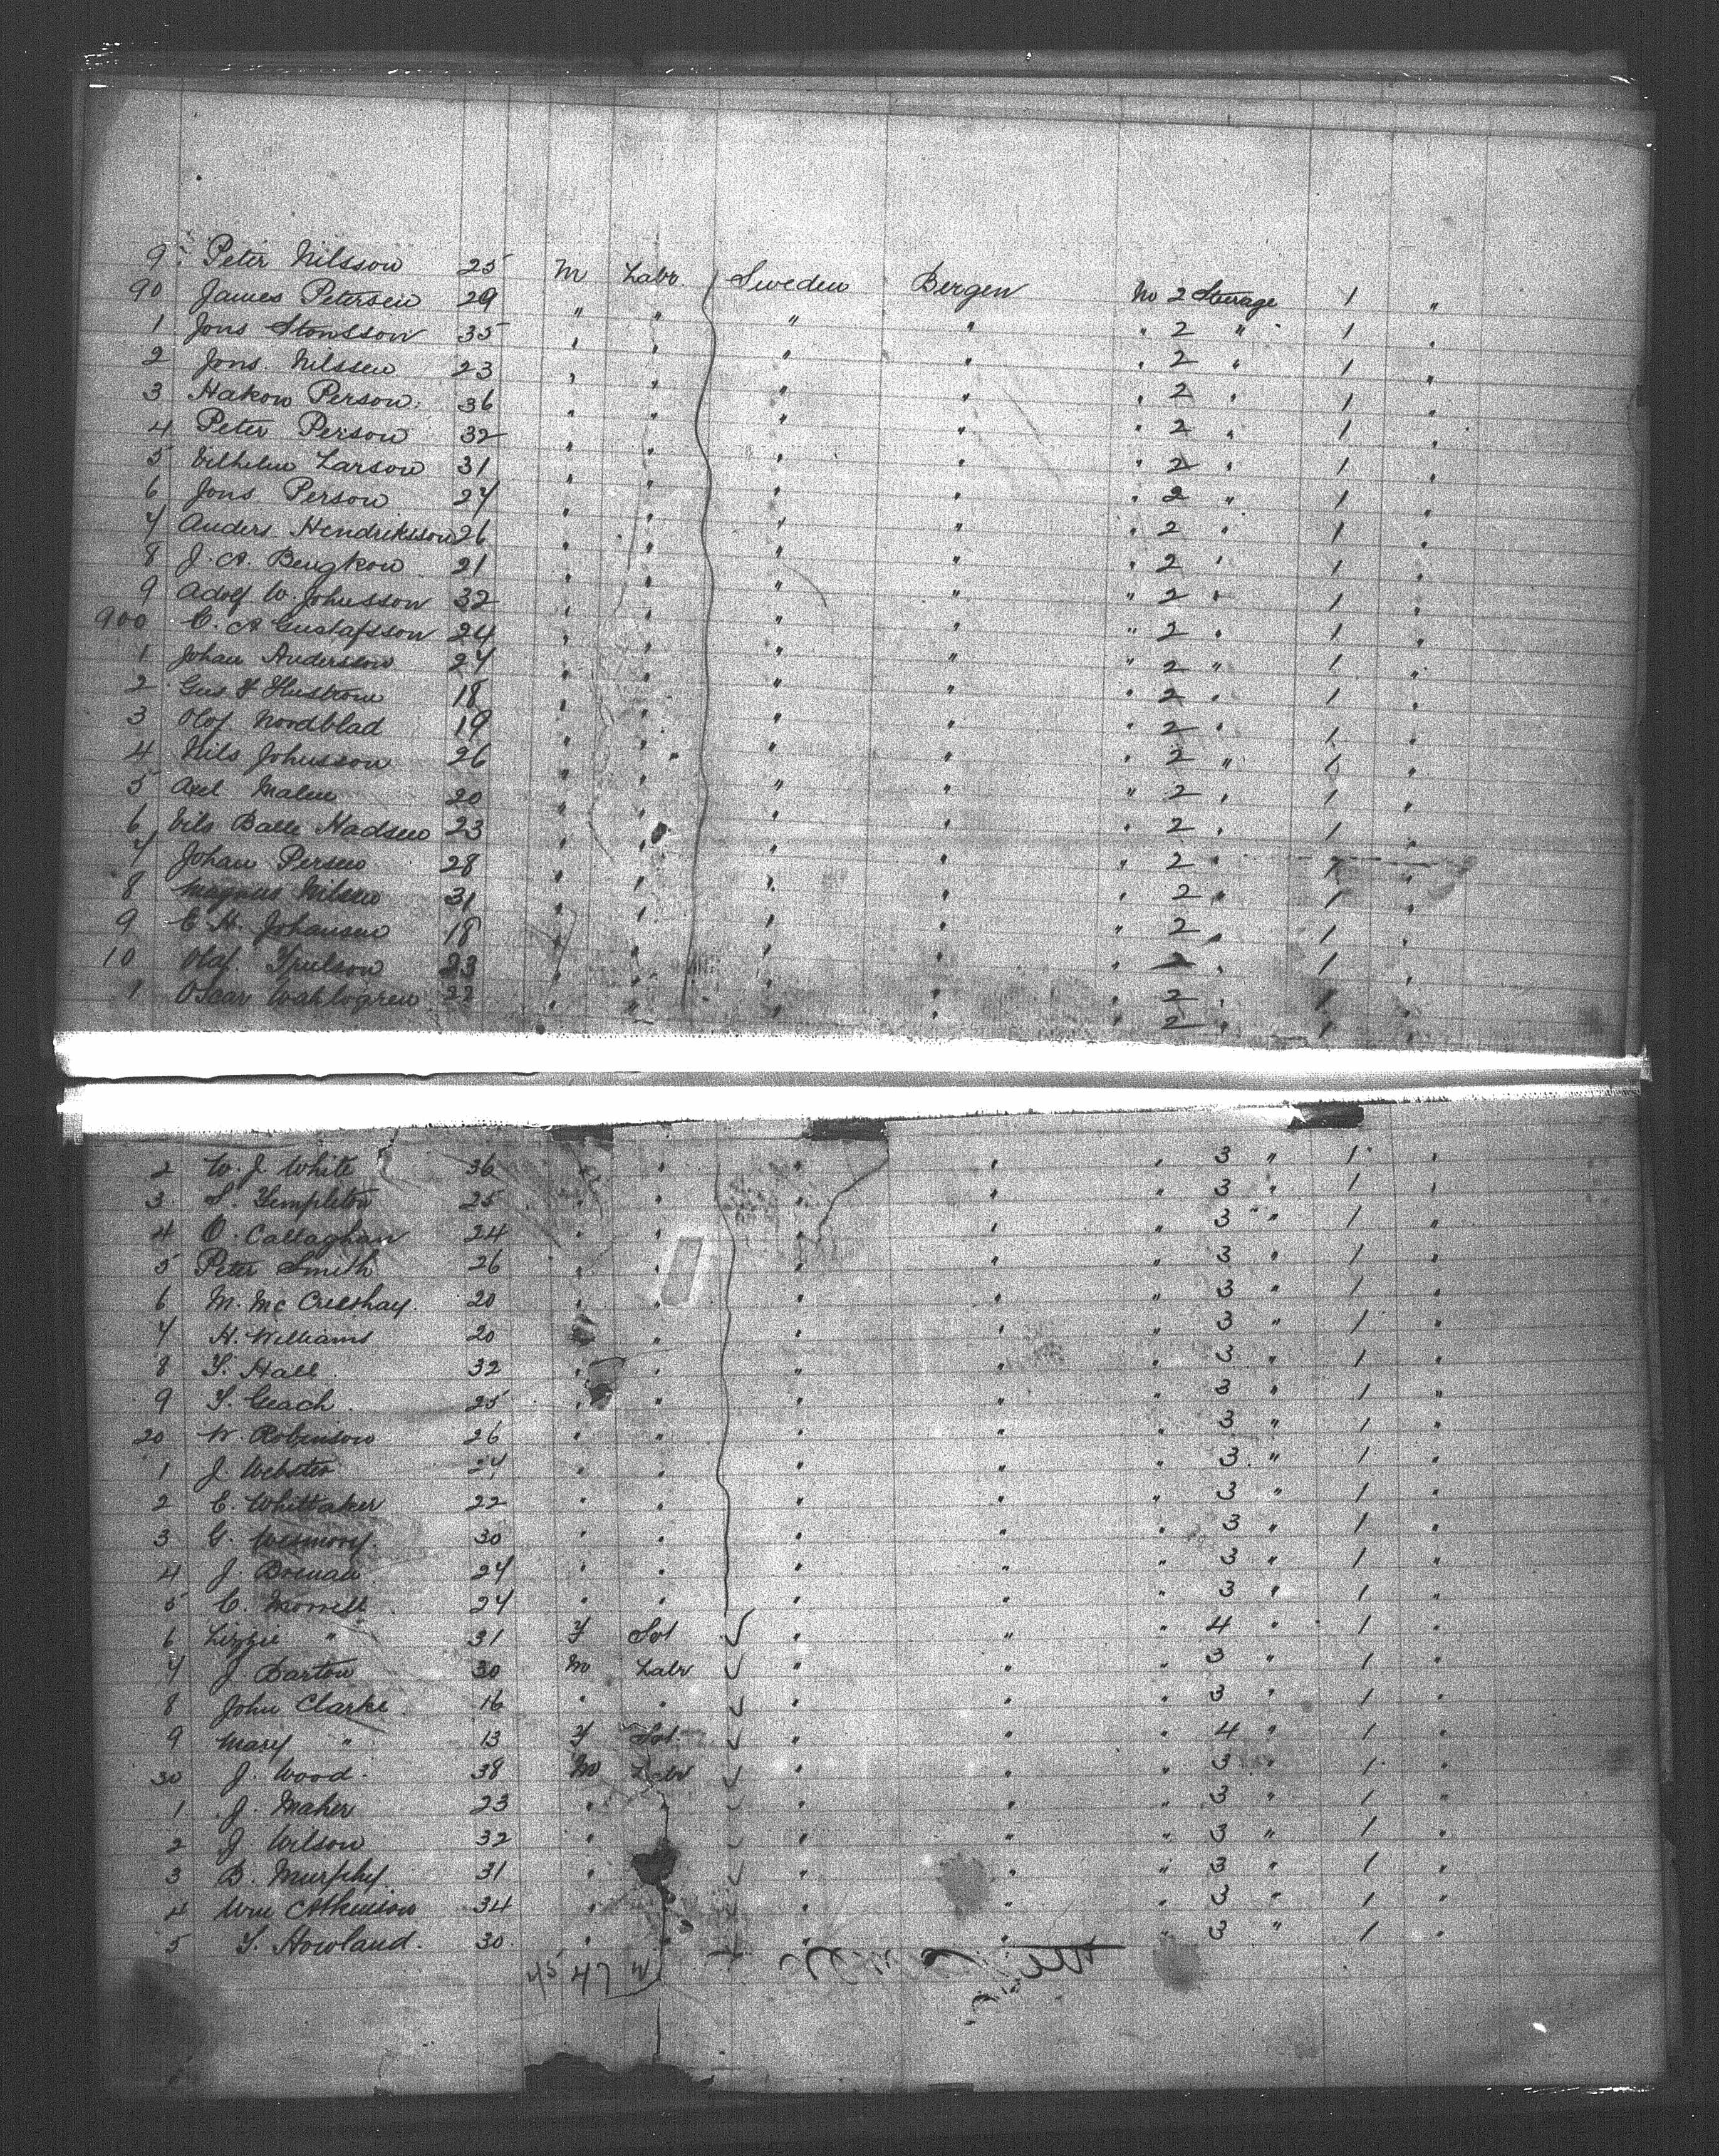 9 Peter Nilsson 25 M Labr Sweden Bergen No 2 Steerage 1 "
90 James Petersen 29 " " " " " 2 " 1 "
1 Jons 35 " " " " " 2 " 1 "
2 Jons. Nilssen 23 " " " " " 2 " 1 "
3 Hakon Person. 36 " " " " " 2 " 1 "
4 Peter Person 32 " " " " " 2 " 1 "
5 Vilhelm Larson 31 " " " " " 2 " 1 "
6 Jons Person 27 " " " " " 2 " 1 "
7 Anders Hendriksson 26 " " " " " 2 " 1 "
8 J. A. 21 " " " " " 2 " 1 "
9 Adolf W. Johnsson 32 " " " " " 2 " 1 "
900 C. A Gustafsson 24 " " " " " 2 " 1 "
1 Johan Andersson 27 " " " " " 2 " 1 "
2 Gus 18 " " " " " 2 " 1 "
3 Olof Nordblad 19 " " " " " 2 " 1 "
4 Nils Johnsson 26 " " " " " 2 " 1 "
5 Axel Malm 20 " " " " " 2 " 1 "
6 Balle Hadsen 23 " " " " " 2 " 1 "
7 Johan Persen 28 " " " " " 2 " 1 "
8 Magnus Nilsen 31 " " " " " 2 " 1 "
9 C. H. Johansen 18 " " " " " 2 " 1 "
10 Olaf. 23 " " " " " 2 " 1 "
1 Oscar Wahlogren 22 " " " " " 2 " 1 "
2 W. J. White 36 " " " " " 3 " 1 "
3 S. Templeton 25 " " " " " 3 " 1 "
4 O. Callaghan 24 " " " " " 3 " 1 "
5 Peter Smith 26 " " " " " 3 " 1 "
6 M. Mc 20 " " " " " 3 " 1 "
7 H. Williams 20 " " " " " 3 " 1 "
8 T. Hall 32 " " " " " 3 " 1 "
9 T. Geach 25 " " " " " 3 " 1 "
20 W. Robinson 26 " " " " " 3 " 1 "
1 J. Webster 27 " " " " " 3 " 1 "
2 E. Whittaker 22 " " " " " 3 " 1 "
3 G. 30 " " " " " 3 " 1 "
4 J. 27 " " " " " 3 " 1 "
5 C. Morrell 27 " " " " " 3 " 1 "
6 Lizzie " 31 F " " " 4 " 1 "
7 J Barton 30 M Labr " " " 3 " 1 "
8 John Clarke 16 " " " " " 3 " 1 "
9 Mary " 13 F " " " 4 " 1 "
30 J. Wood. 38 M Labr " " " 3 " 1 "
1 J. Maher 23 " " " " " 3 " 1 "
2 J. Wilson 32 " " " " " 3 " 1 "
3 B. Murphy 31 " " " " " 3 " 1 "
4 Wm Atkinson 34 " " " " " 3 " 1 "
5 T. Howland. 30 " " " " " 3 " 1 "
47